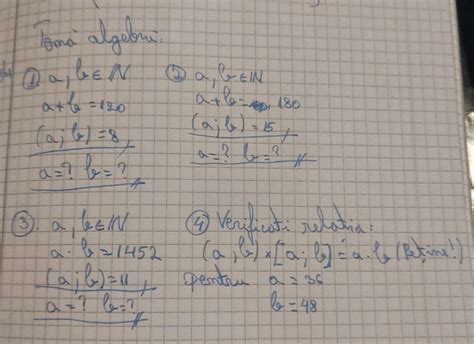 Temă algebră.
① a, b ∈ ℕ
a+b = 120
(a; b) = 8
a=? b=?
② a, b ∈ ℕ
a+b = 180
(a; b) = 15
a=? b=?
③. a, b ∈ ℕ
a · b = 1452
(a; b) = 11
a=? b=?
④ Verificați relația:
(a, b) × [a; b] = a · b (Rețineți!)
pentru a = 36
b = 48